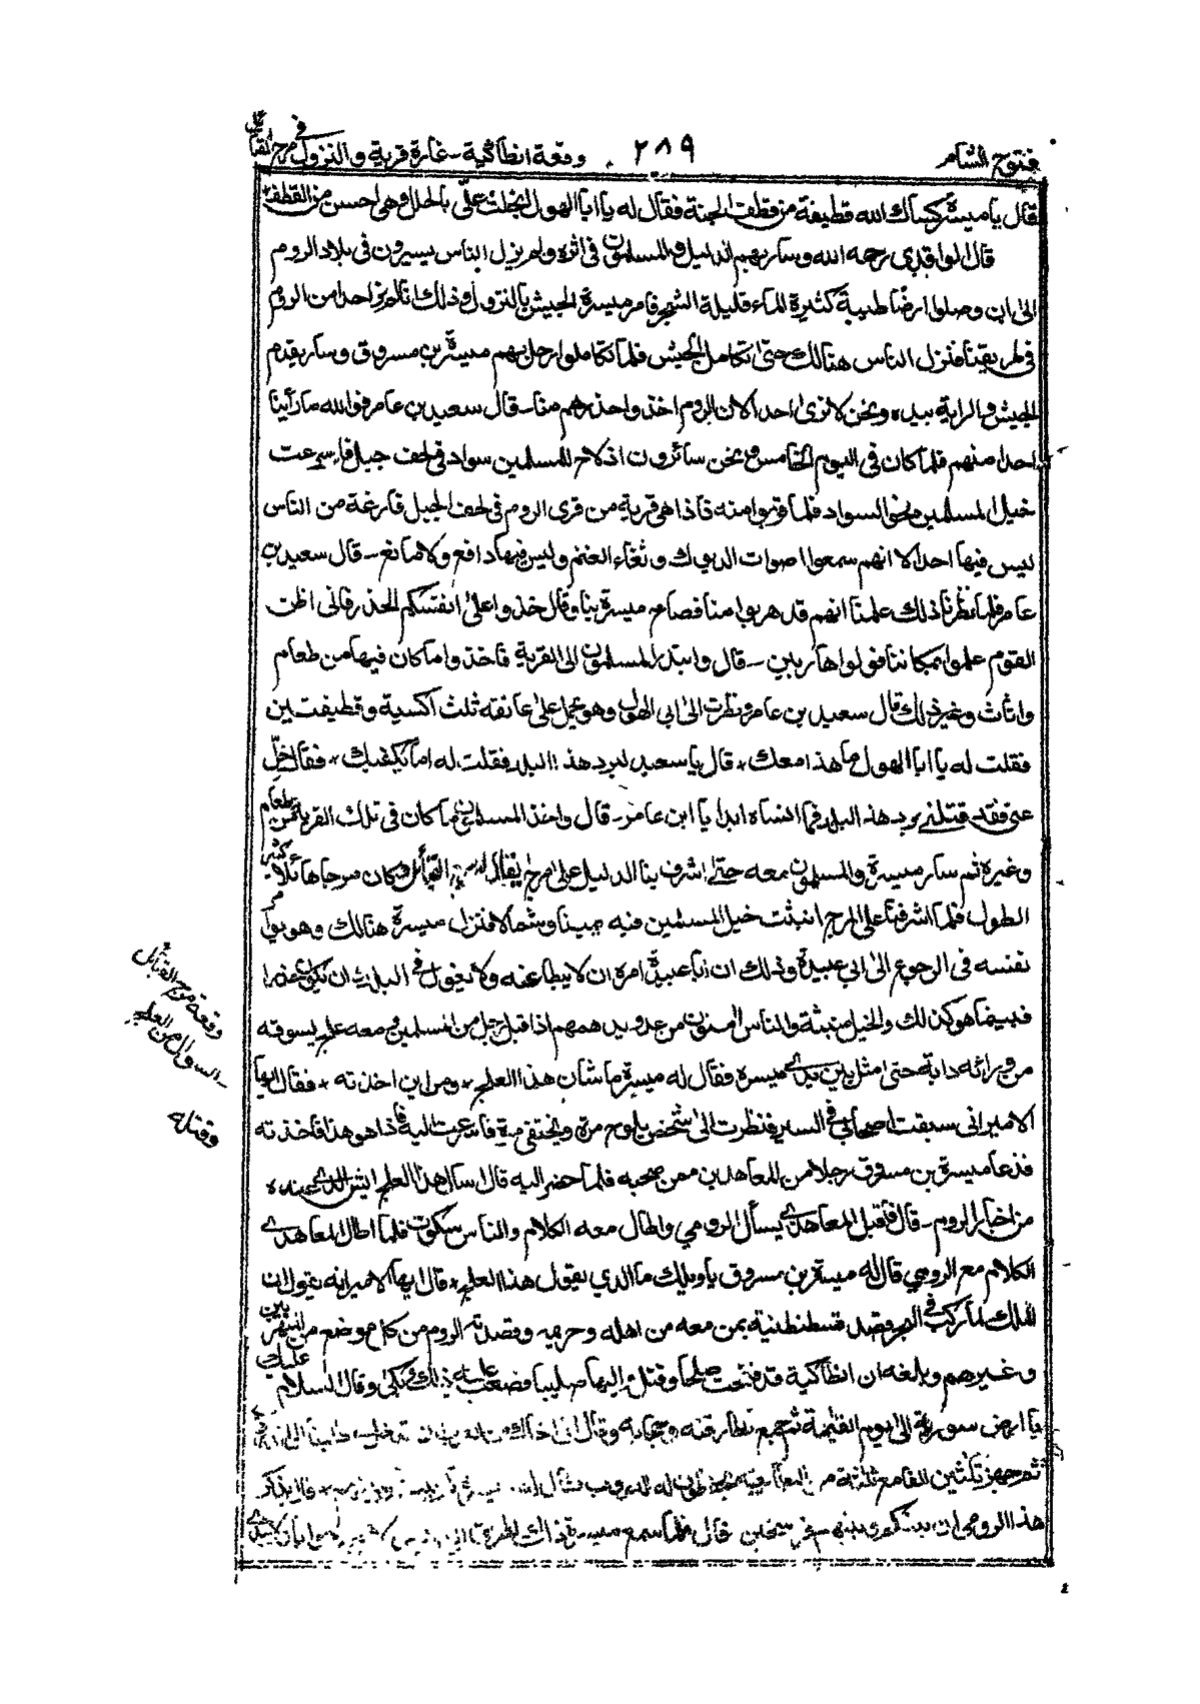 فتوح الشام ٢٨٩ وقعة انطاكية - غارة قرية والنزول في مرج القبائل
فقال يا ميسرة كساك الله قطيفة من قطف الجنة فقال له يا ابا الهول ابخلت علىّ بالحلل وهى احسن من القطف
قال الواقدى رحمه الله وسار بهم الدليل والمسلمون فى اثره ولم يزيل الناس يسيرون فى بلاد الروم
الىٰ ان وصلوا ارضًا طيبة كثيرة الماء قليلة الشجر فامر ميسرة الجيش بالنزول وذلك انا لم نر احدا من الروم
فى طريقنا فنزل الناس هنالك حتىٰ تكامل الجيش فلما تكاملوا رحل بهم ميسرة بن مسروق وسار يقدم
الجيش والراية بيده ونحن لا نرىٰ احدا لان الروم اخذوا حذرهم منا - قال سعيد بن عامر فوالله ما رأينا
احدا منهم فلما كان فى اليوم الخامس ونحن سائرون اذ لاح للمسلمين سواد فى لحف جبل فاسرعت
خيل المسلمين نحو السواد فلما قربوا منه فاذا هى قرية من قرى الروم فى لحف الجبل فارغة من الناس
ليس فيها احد الا انهم سمعوا اصوات الديوك وثغاء الغنم وليس فيها دافع ولا مانع - قال سعيد بن
عامر فلما نظرنا ذلك علمنا انهم قد هربوا منا فصاح ميسرة بنا وقال خذوا علىٰ انفسكم الحذر فانى اظن
القوم علموا بمكاننا فولوا هاربين - قال وابتدر المسلمون الى القرية فاخذوا ما كان فيها من طعام
واثاث وغير ذلك قال سعيد بن عامر ونظرت الىٰ ابى الهول وهو يحمل علىٰ عاتقه ثلث اكسية وقطيفتين
فقلت له يا ابا الهول ما هذا معك * قال يا سعيد لبرد هذا البلد فقلت له اما تكفيك * فقال خلّ
عنى فقد قتلنى برد هذه البلد فما انساه ابدا يا ابن عامر - قال واخذ المسلمون ما كان فى تلك القرية من طعام
وغيره ثم سار ميسرة والمسلمون معه حتىٰ اشرف بنا الدليل على مرج يقال له مرج القبائل وكان مرجا هائلا كثير
الطول فلما اشرفنا على المرج انبثت خيل المسلمين فيه يمينا وشمالا فنزل ميسرة هنالك وهو يوامر
نفسه فى الرجوع الىٰ ابى عبيدة وذلك ان ابا عبيدة امره ان لا يبطا عنه ولا يغول فى البلد وان يكون حذرا
فبينما هو كذلك والخيل منبثة والناس امنون من عدو يدهمهم اذا قبل رجل من المسلمين ومعه علج يسوقه
من ورائه دابة حتى امثل بين يدى ميسرة فقال له ميسرة ما شان هذا العلج * ومن اين اخذته * فقال ايها
الامير انى سبقت اصحابى فى السير فنظرت الىٰ شخص يلوح مرة ويختفى مرة فاسرعت اليه فاذا هو هذا فاخذته
فدعا ميسرة بن مسروق رجلا من المعاهدين ممن صحبه فلما حضر اليه قال اسأل هذا العلج ايش الذى عنده
من اخبار الروم - قال فاقبل المعاهدى يسأل الرومي واطال معه الكلام والناس سكوت فلما اطال المعاهدى
الكلام مع الرومي قال له ميسرة بن مسروق يا ويلك ما الذي يقول هذا العلج * قال ايها الامير انه يقول ان
الملك لما ركب فى البحر وقصد قسطنطنية بمن معه من اهله وحريمه وقصدته الروم من كل موضع من المنهزمين
وغيرهم وبلغه ان انطاكية قد فتحت صلحا وقتل واليها صليبا فصعب عليه ذلك وبكىٰ وقال السلام عليك
يا ارض سورية الىٰ يوم القيمة ثم جمع بطارقته وحجابه وقال انى اخاف من العرب ان
ثم جهز ثلثين الفا مع ثلثة من البطارقة
هذا الرومي ان بينكم وبينهم فرسخين قال فلما سمع ميسرة ذلك
وقعة مرج القبائل
السوال من العلج
وقتله